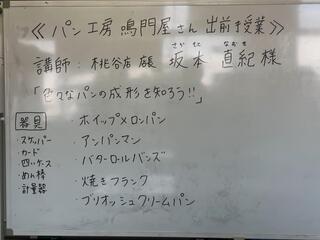 ≪パン工房 鳴門屋さん 出前授業≫
講師：桃谷店 店長 坂本 直紀 様
さかもと なおき
「色々なパンの成形を知ろう!!」
器具
・スケッパー
・カード
・四いケース
・めん棒
・計量器
・ホイップメロンパン
・アンパンマン
・バターロールバンズ
・焼きフランク
・ブリオッシュクリームパン